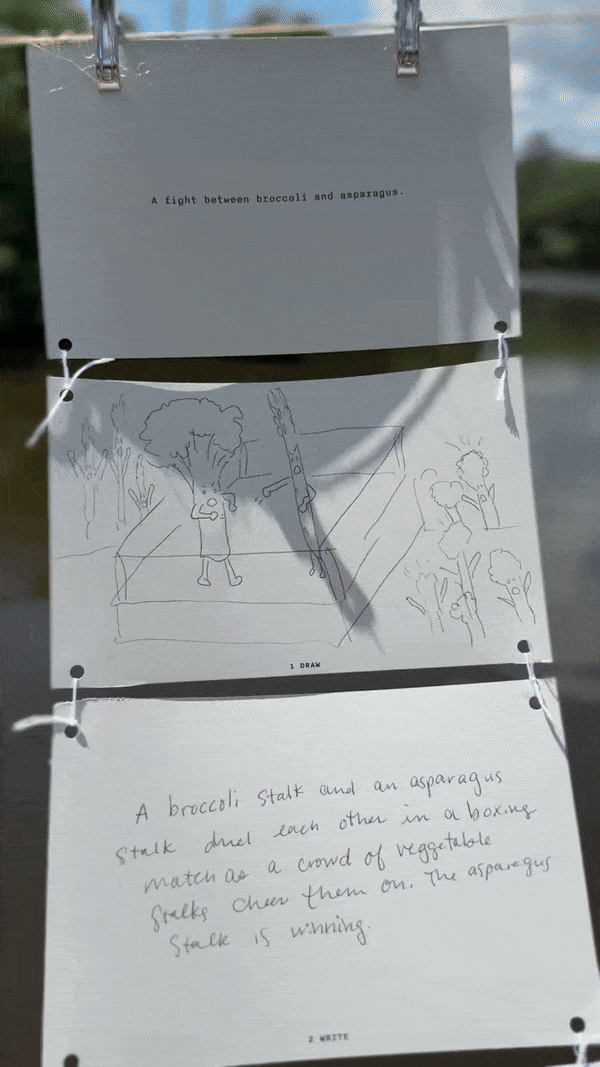 A fight between broccoli and asparagus.
1 DRAW
A broccoli stalk and an asparagus
stalk duel each other in a boxing
match as a crowd of veggetable
stalks cheer them on. The asparagus
stalk is winning.
2 WRITE